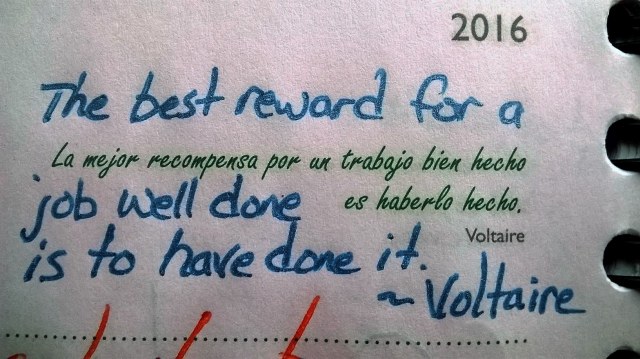 2016
The best reward for a
La mejor recompensa por un trabajo bien hecho
job well done
es haberlo hecho.
Voltaire
is to have done it.
~ Voltaire